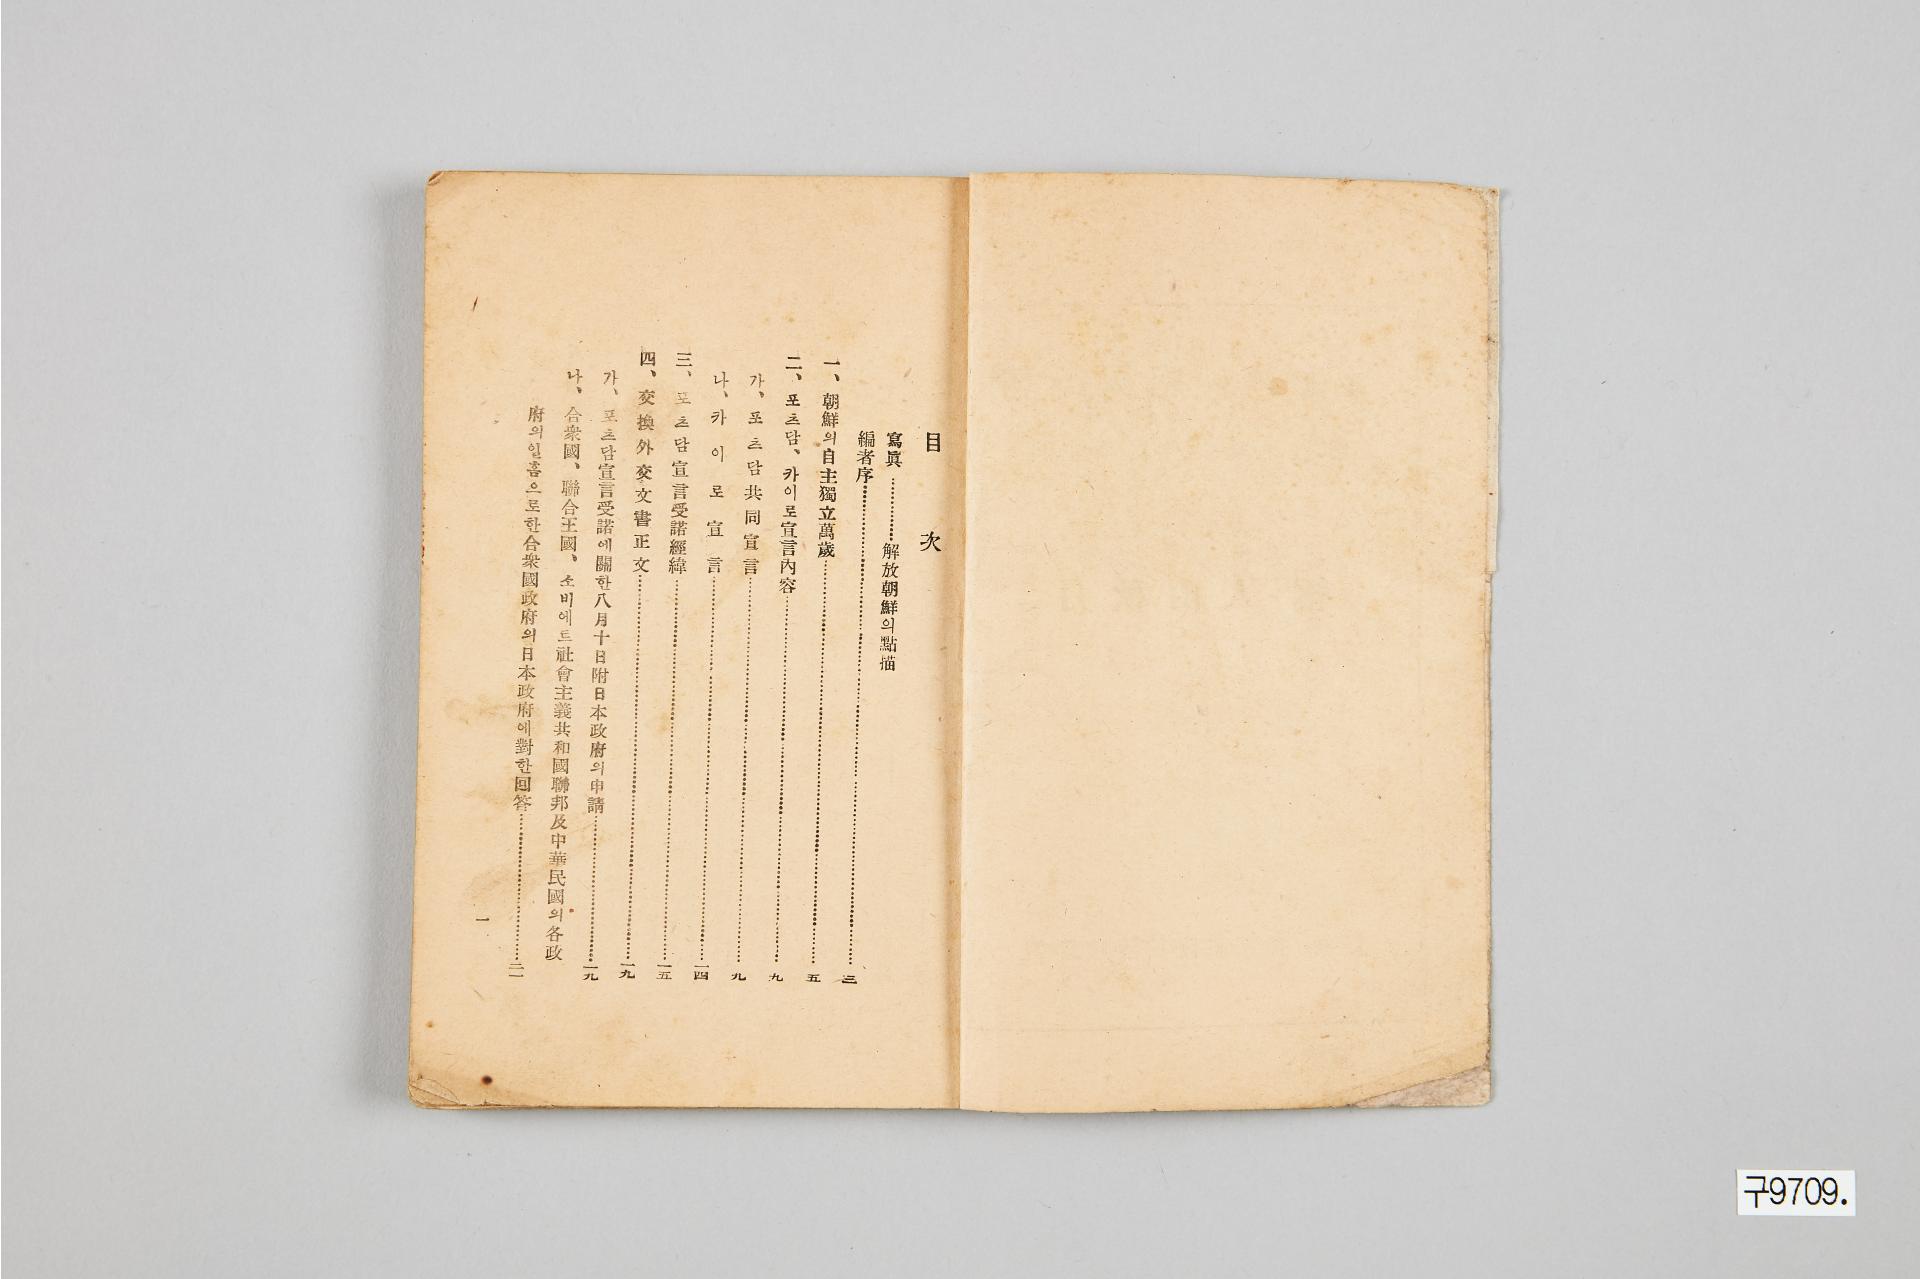 目次
寫眞…………解放朝鮮의點描
編者序…………三
一、朝鮮의自主獨立萬歲…………五
二、포츠담、카이로宣言內容…………九
가、포츠담共同宣言…………九
나、카이로宣言…………一四
三、포츠담宣言受諾經緯…………一五
四、交換外交文書正文…………一九
가、포츠담宣言受諾에關한八月十日附日本政府의申請…………一九
나、合衆國、聯合王國、소비에트社會主義共和國聯邦及中華民國의各政
府의일홈으로한合衆國政府의日本政府에對한回答…………二一
一
구9709.